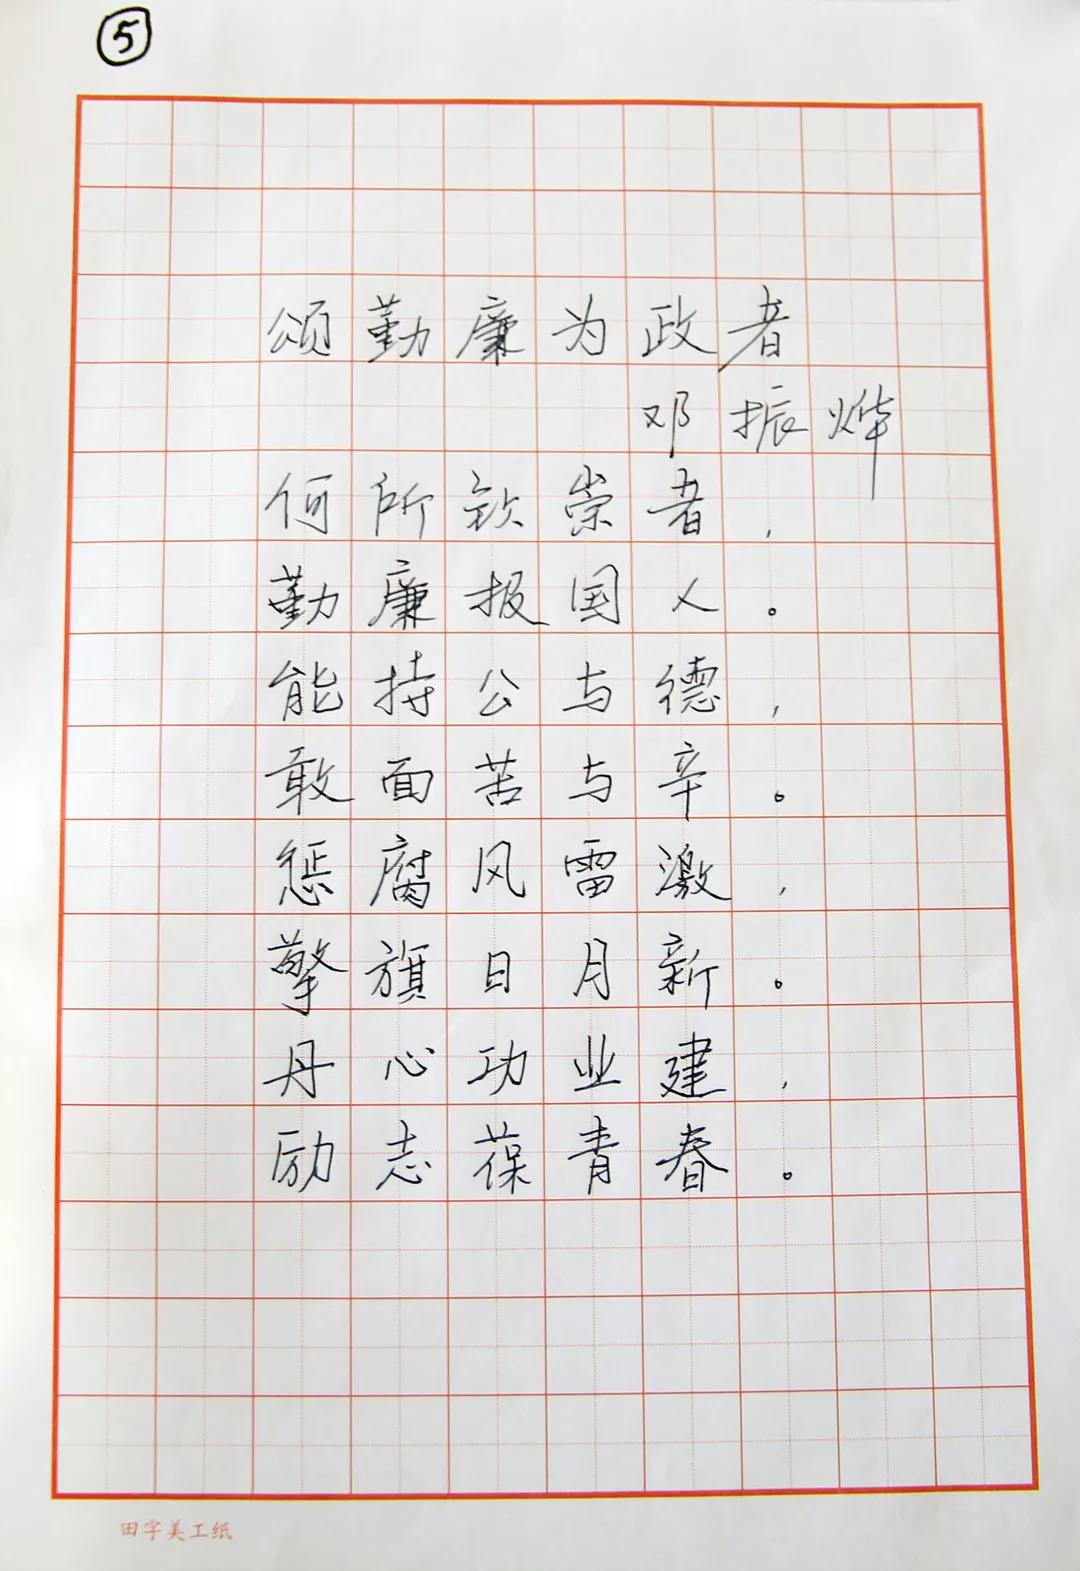 5
颂勤廉为政者
邓振烨
何所钦崇者，
勤廉报国人。
能持公与德，
敢面苦与辛。
惩腐风雷激，
擎旗日月新。
丹心功业建，
励志葆青春。
田字美工纸